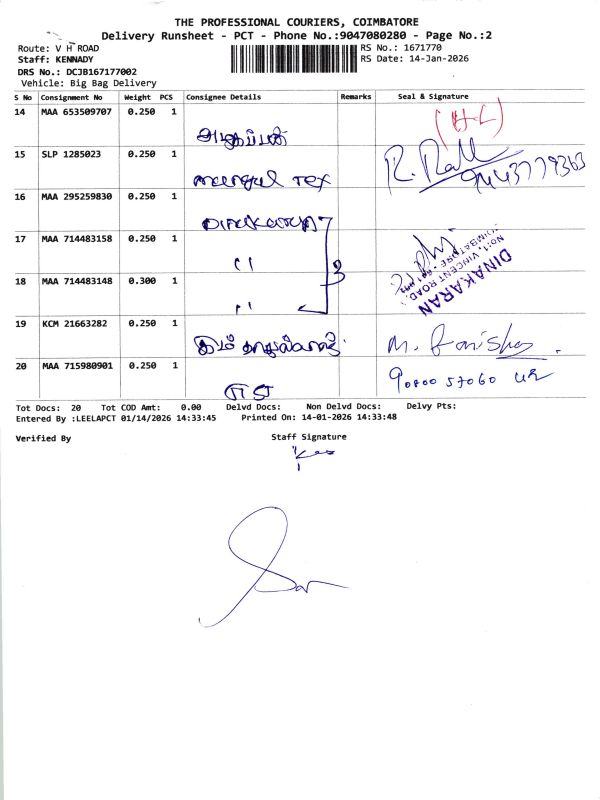 THE PROFESSIONAL COURIERS, COIMBATORE
Delivery Runsheet - PCT - Phone No.:9047080280 - Page No.:2
Route: V H ROAD
RS No.: 1671770
Staff: KENNADY
RS Date: 14-Jan-2026
DRS No.: DCJB167177002
Vehicle: Big Bag Delivery
S No Consignment No Weight PCS Consignee Details Remarks Seal & Signature
14 MAA 653509707 0.250 1
(H-L)
15 SLP 1285023 0.250 1
Tex
9443779363
16 MAA 295259830 0.250 1
17 MAA 714483158 0.250 1
11
3
DINAKARAN
No:1, VINCENT ROAD,
18 MAA 714483148 0.300 1
11
19 KCM 21663282 0.250 1
20 MAA 715980901 0.250 1
Tot Docs: 20 Tot COD Amt: 0.00 Delvd Docs: Non Delvd Docs: Delvy Pts:
Entered By :LEELAPCT 01/14/2026 14:33:45 Printed On: 14-01-2026 14:33:48
Verified By
Staff Signature